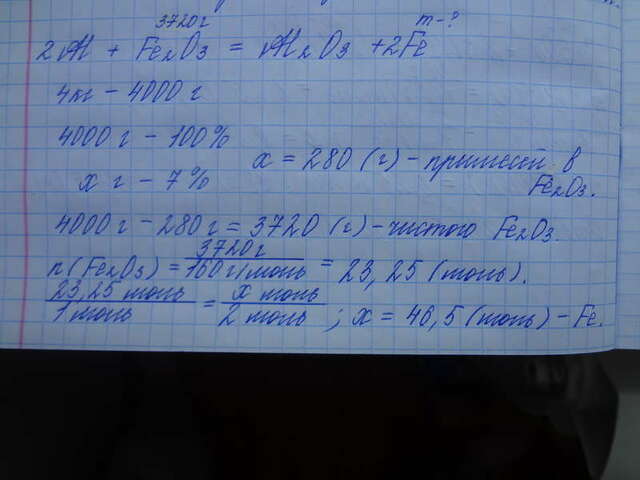 3720 г m - ?
2Al + Fe₂O₃ = Al₂O₃ + 2Fe
4кг - 4000 г
4000 г - 100%
x г - 7%
x = 280 (г) - примесей в Fe₂O₃.
4000 г - 280 г = 3720 (г) - чистого Fe₂O₃.
n(Fe₂O₃) = 3720 г / 160 г/моль = 23,25 (моль).
23,25 моль / 1 моль = x моль / 2 моль ; x = 46,5 (моль) - Fe.